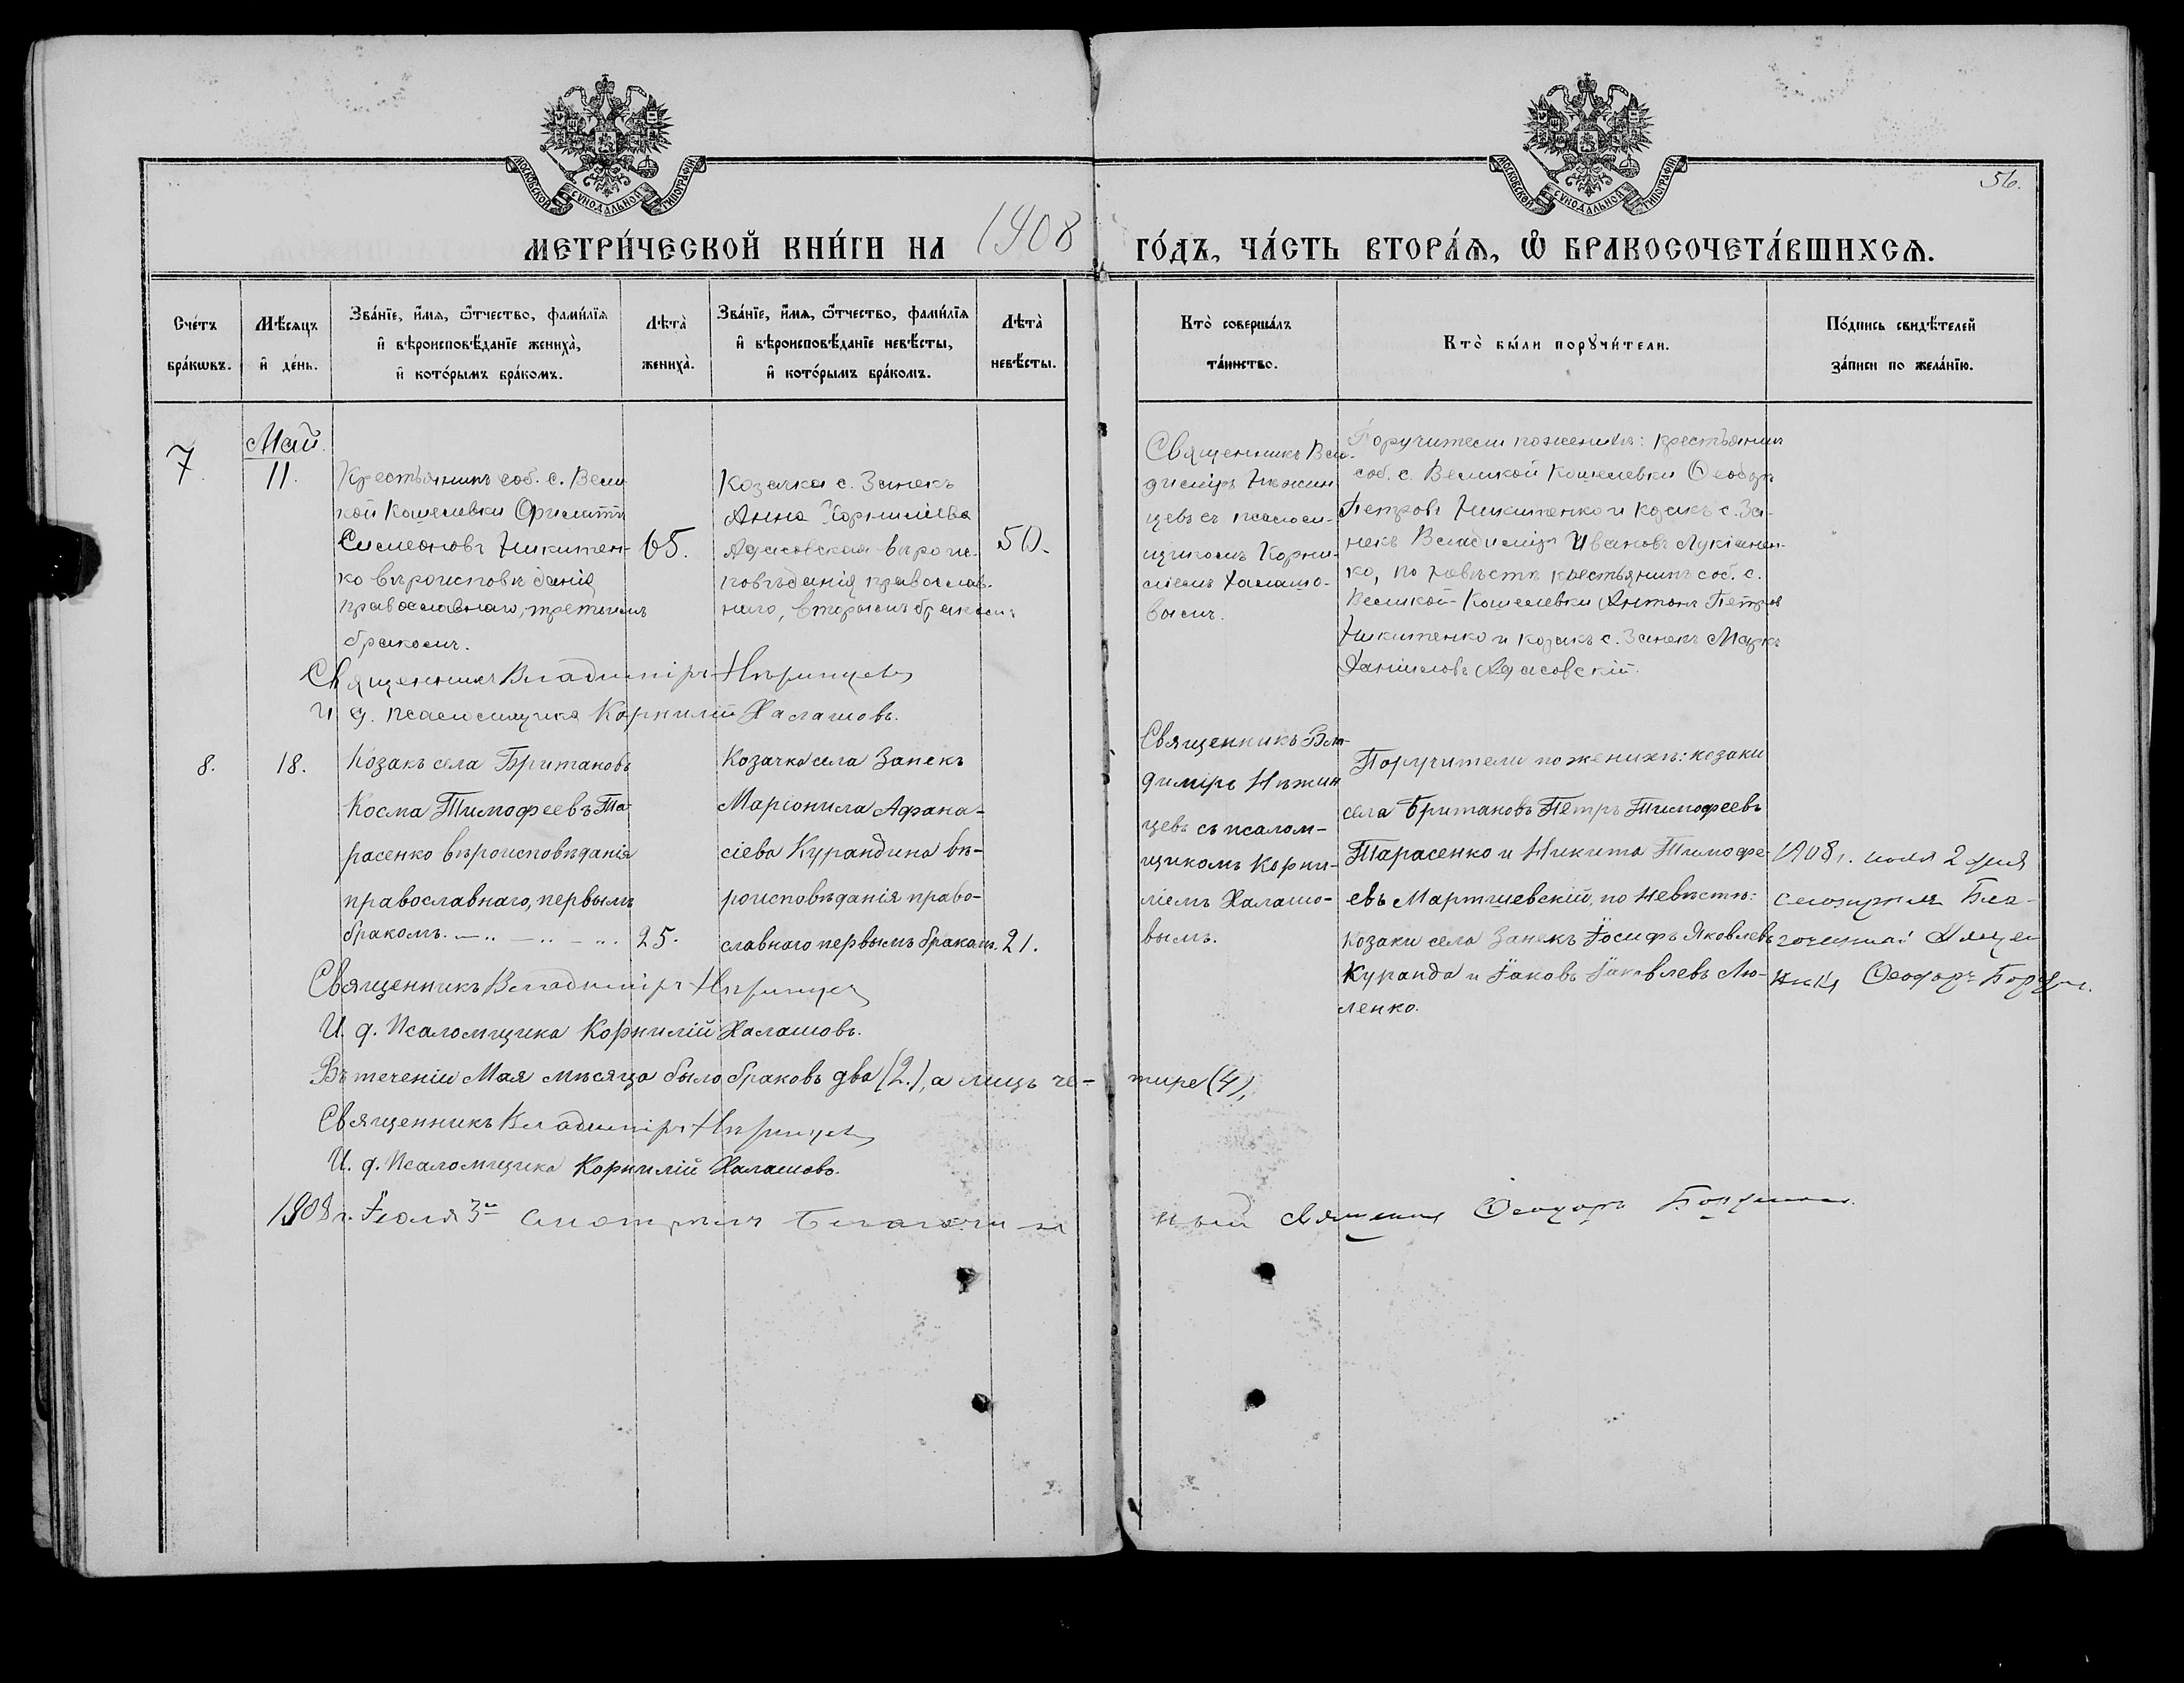 МОСКОВСКОЙ СѴНОДАЛЬНОЙ ТИПОГРАФІИ
МОСКОВСКОЙ СѴНОДАЛЬНОЙ ТИПОГРАФІИ
56.
МЕТРИ́ЧЕСКОЙ КНИ́ГИ НА 1908 ГО́ДЪ, ЧА́СТЬ ВТОРА́Ѧ, Ѽ БРАКОСОЧЕТА́ВШИХСѦ.
Сче́тъ бра́кѡвъ.
Мѣ́сяцъ и҆ де́нь.
Зва́нїе, и҆́мѧ, ѻ҆́тчество, фами́лїѧ
и҆ вѣроисповѣ́данїе жениха̀,
и҆ кото́рымъ бра́комъ.
Лѣта̀ жениха̀.
Зва́нїе, и҆́мѧ, ѻ҆́тчество, фами́лїѧ
и҆ вѣроисповѣ́данїе невѣ́сты,
и҆ кото́рымъ бра́комъ.
Лѣта̀ невѣ́сты.
Кто̀ соверша́лъ та́инство.
Кто̀ бы́ли порꙋчи́тели.
По́дпись свидѣ́телей
за́писи по жела́нїю.
7.
Май
11.
Крестьянинъ соб. с. Вели
кой Кошелевки
Симеоновъ Никитен-
ко вѣроисповѣданія
православнаго, третьимъ
бракомъ.
65.
Козачка с. Занекъ
Анна Корниліева
Адасовская вѣроис-
повѣданія православ-
наго, вторымъ бракомъ
50.
Священникъ Вла-
диміръ Нѣжин
цевъ съ псалом-
щикомъ Корни-
ліемъ Халашо-
вымъ.
Поручители по женихѣ: крестьянинъ
соб. с. Великой Кошелевки Ѳеодоръ
Петровъ Никитенко и козакъ с. За-
некъ Владиміръ Ивановъ Лукіанен-
ко, по невѣстѣ крестьянинъ соб. с.
Великой-Кошелевки Антонъ Петров
Никитенко и козакъ с. Занекъ Маркъ
Даніиловъ Адасовскій.
Священникъ Владиміръ Нѣжинцевъ
И. д. псаломщика Корнилій Халашовъ.
8.
18.
Козакъ села Британовъ
Косма Тимофеевъ Та-
расенко вѣроисповѣданія
православнаго, первымъ
бракомъ. — „ — „ — „
25.
Козачка села Занекъ
Маріонила Афана-
сіева Курандина вѣ-
роисповѣданія право-
славнаго первымъ бракомъ.
21.
Священникъ Вла-
диміръ Нѣжин
цевъ съ псалом-
щикомъ Корни-
ліемъ Халашо-
вымъ.
Поручители по женихѣ: козаки
села Британовъ Петръ Тимофеевъ
Тарасенко и Никита Тимофе-
евъ Мартшевскій, по невѣстѣ:
козаки села Занекъ Іосифъ Яковлевъ
Куранда и Іаковъ Іаковлевъ Лю-
ленко.
1908 г. іюля 2 дня
смотрѣлъ Бла-
гочинный Ѳеодоръ
Священникъ Владиміръ Нѣжинцевъ
И. д. Псаломщика Корнилій Халашовъ.
Въ теченіи Мая мѣсяца было браковъ два (2.), а лицъ че-тире (4),
Священникъ Владиміръ Нѣжинцевъ
И. д. Псаломщика Корнилій Халашовъ.
1908 г. Іюля 3го смотрѣлъ Благочин ный Священникъ Ѳеодоръ